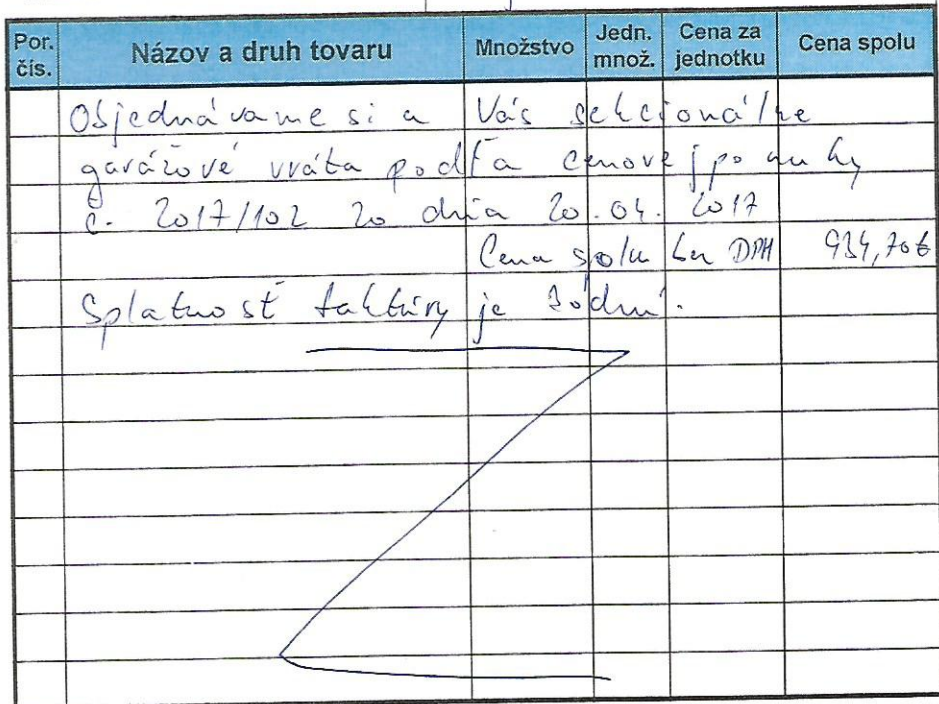 Por. čís. Názov a druh tovaru Množstvo Jedn. množ. Cena za jednotku Cena spolu
Objednávame si u Vás sekcionálne
garážové vráta podľa cenovej ponuky
č. 2017/102 zo dňa 20.04.2017
Cena spolu bez DPH 934,70€
Splatnosť faktúry je 30 dní.